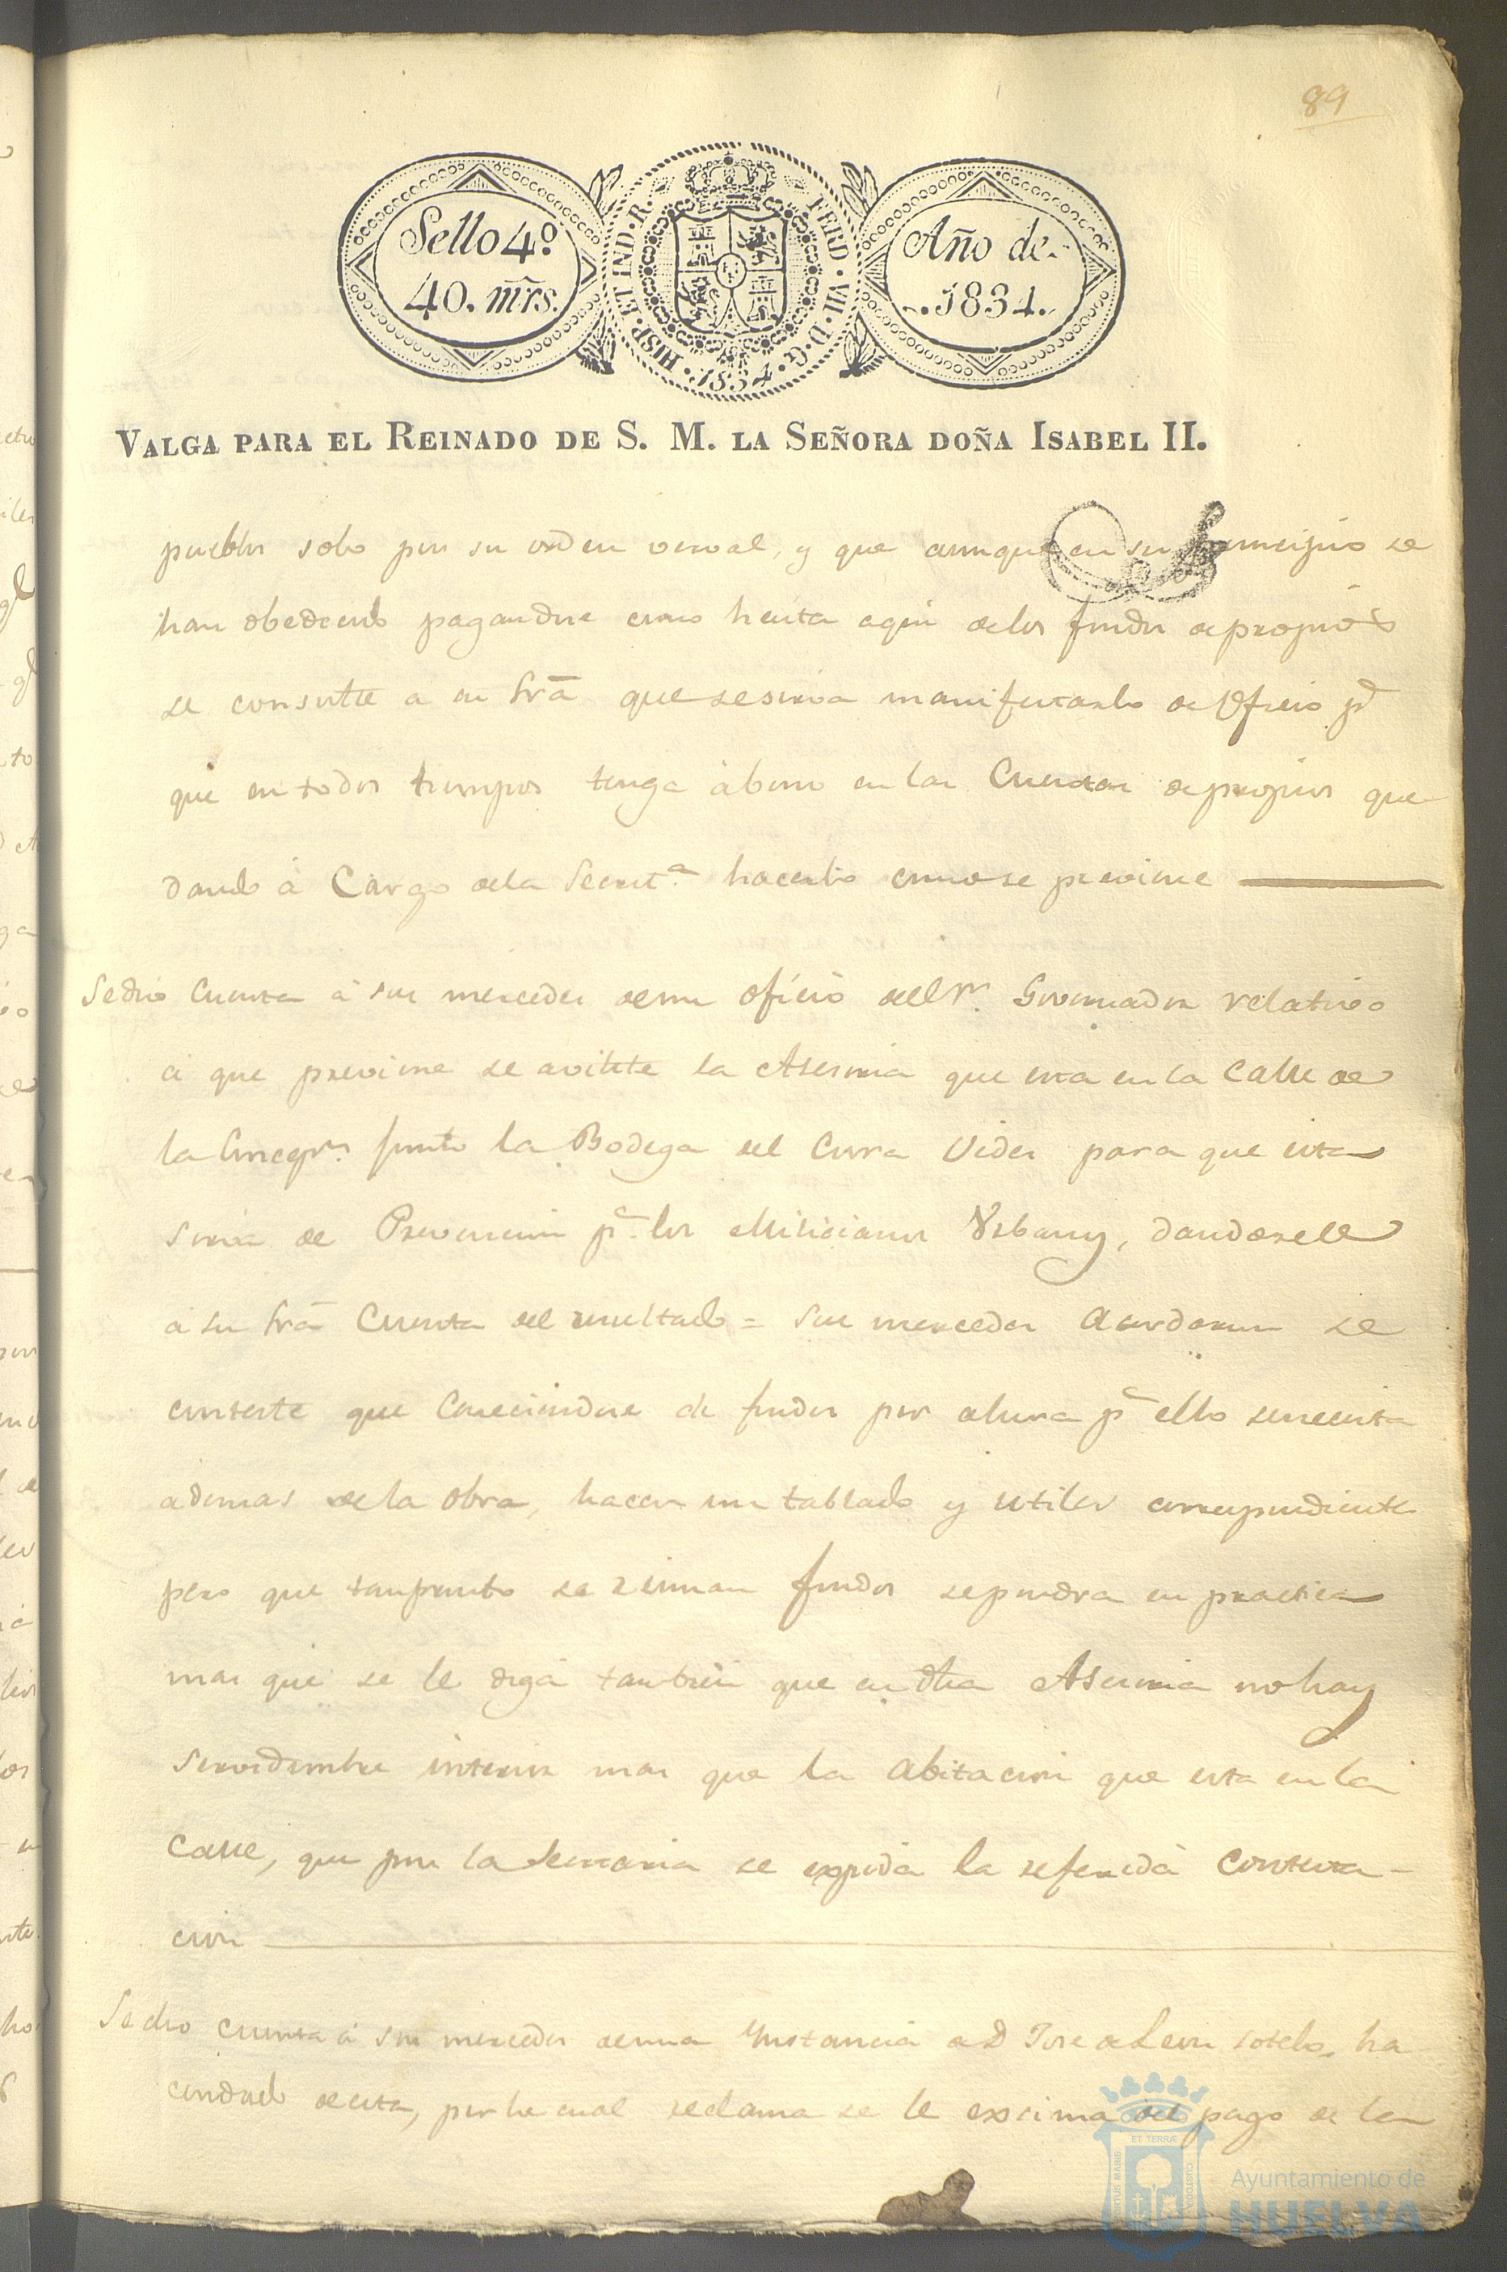 89
Sello 4º
40. mrs.
HISP. ET IND. R. FERD. VII. D. G. 1834.
Año de
1834.
VALGA PARA EL REINADO DE S. M. LA SEÑORA DOÑA ISABEL II.
pueblos solo por su orden verval, y que aunque en su principio se
han obedecido pagandose como hasta aqui delos fondos de propios
se consulte a su Srã que se sirva manifestarlo de Oficio pª
que en todos tiempos tenga abono en las Cuentas de propios que
dando á Cargo dela Secretª hacerlo como se previene
Se dio Cuenta á sus mercedes de un oficio del Sr. Governador relativo
á que previene se avilite la Asesoria que esta en la Calle de
la junto la Bodega del Curra Vides para que esta
sirva de Prevencion pª los Milicianos Urbanos, dandosele
a su Srã Cuenta del resultado = sus mercedes acordaron se
conteste que Careciendose de fondos por ahora pª ello se necesita
ademas de la obra, hacer un tablado y utiles correspondientes
pero que tan pronto se reunan fondos se pondra en practica
mas que se le diga tambien que en dha Asesoria no hay
servidumbre interior mas que la abitacion que esta en la
Calle, que por la Secretaria se expida la referida Contesta-
cion
Se dio cuenta á sus mercedes de una Ynstancia de D Jose de Leon Sotelo, ha
cendado de esta, por la cual reclama se le exsima del pago de las
ET TERRÆ
Ayuntamiento de
HUELVA